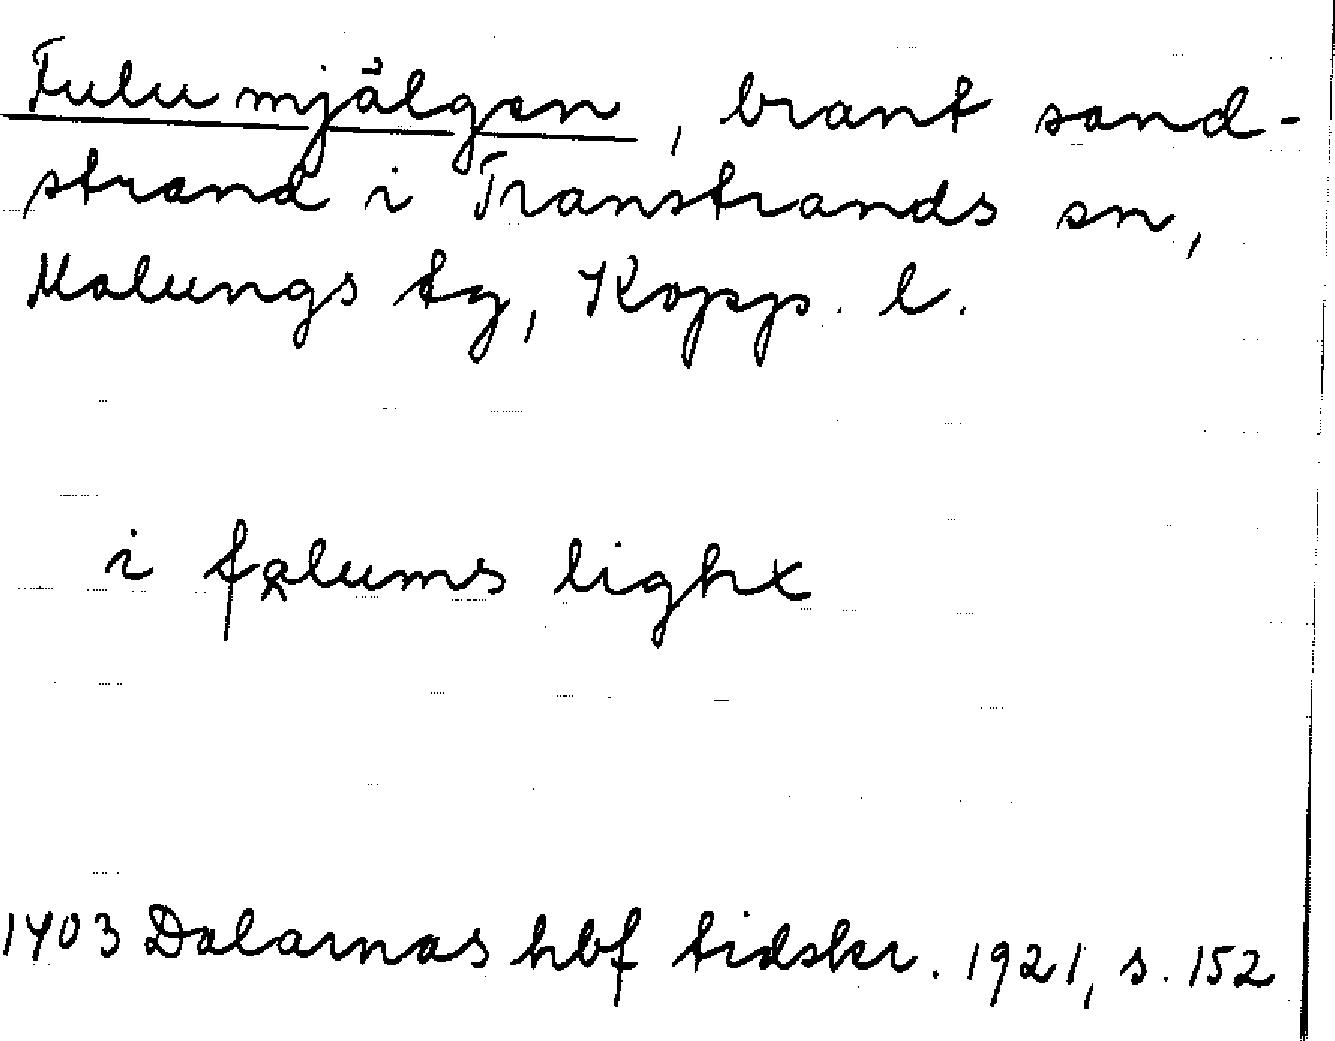 Fulumjälgen, brant sand-
strand i Transtrands sn,
Malungs tg, Kopp. l.
i
1403 Dalarnas hbf tidskr. 1921, s. 152